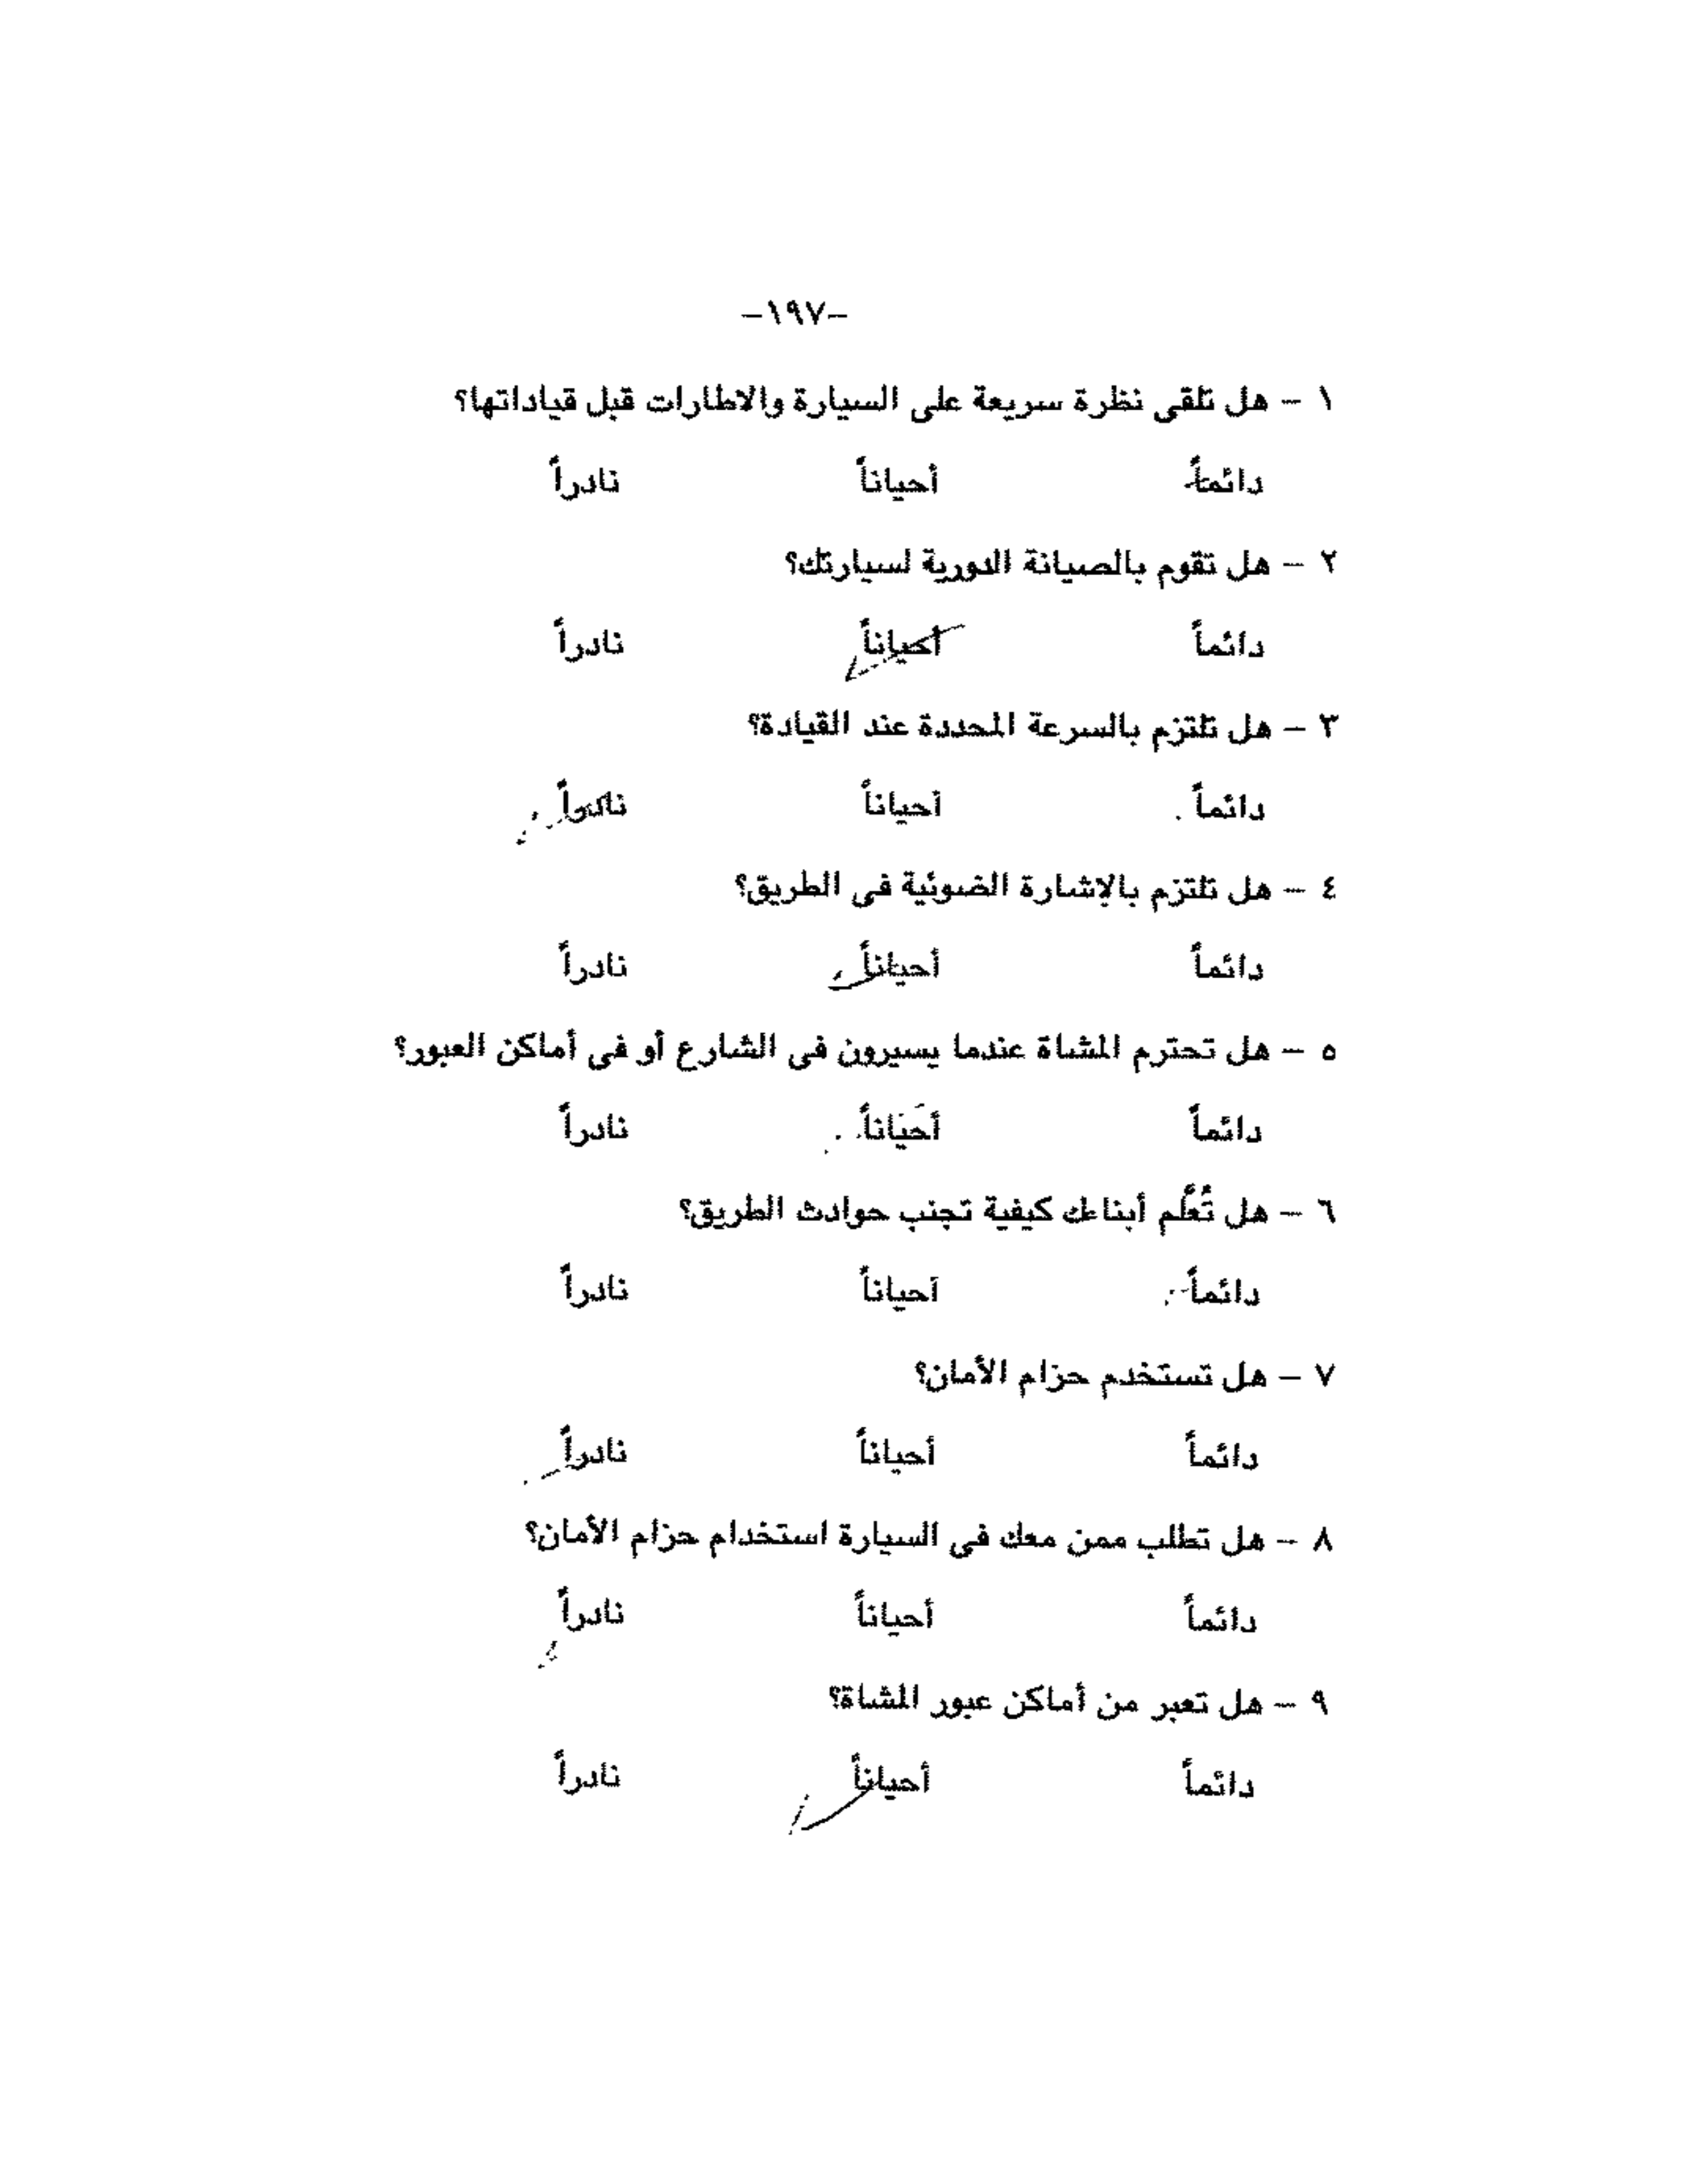 -١٩٧-
١ - هل تلقى نظرة سريعة على السيارة والاطارات قبل قياداتها؟
دائماً أحياناً نادراً
٢ - هل تقوم بالصيانة الدورية لسيارتك؟
دائماً أحياناً نادراً
٣ - هل تلتزم بالسرعة المحددة عند القيادة؟
دائماً أحياناً نادراً
٤ - هل تلتزم بالإشارة الضوئية فى الطريق؟
دائماً أحياناً نادراً
٥ - هل تحترم المشاة عندما يسيرون فى الشارع أو فى أماكن العبور؟
دائماً أحياناً نادراً
٦ - هل تُعلَّم أبناءك كيفية تجنب حوادث الطريق؟
دائماً أحياناً نادراً
٧ - هل تستخدم حزام الأمان؟
دائماً أحياناً نادراً
٨ - هل تطلب ممن معك فى السيارة استخدام حزام الأمان؟
دائماً أحياناً نادراً
٩ - هل تعبر من أماكن عبور المشاة؟
دائماً أحياناً نادراً